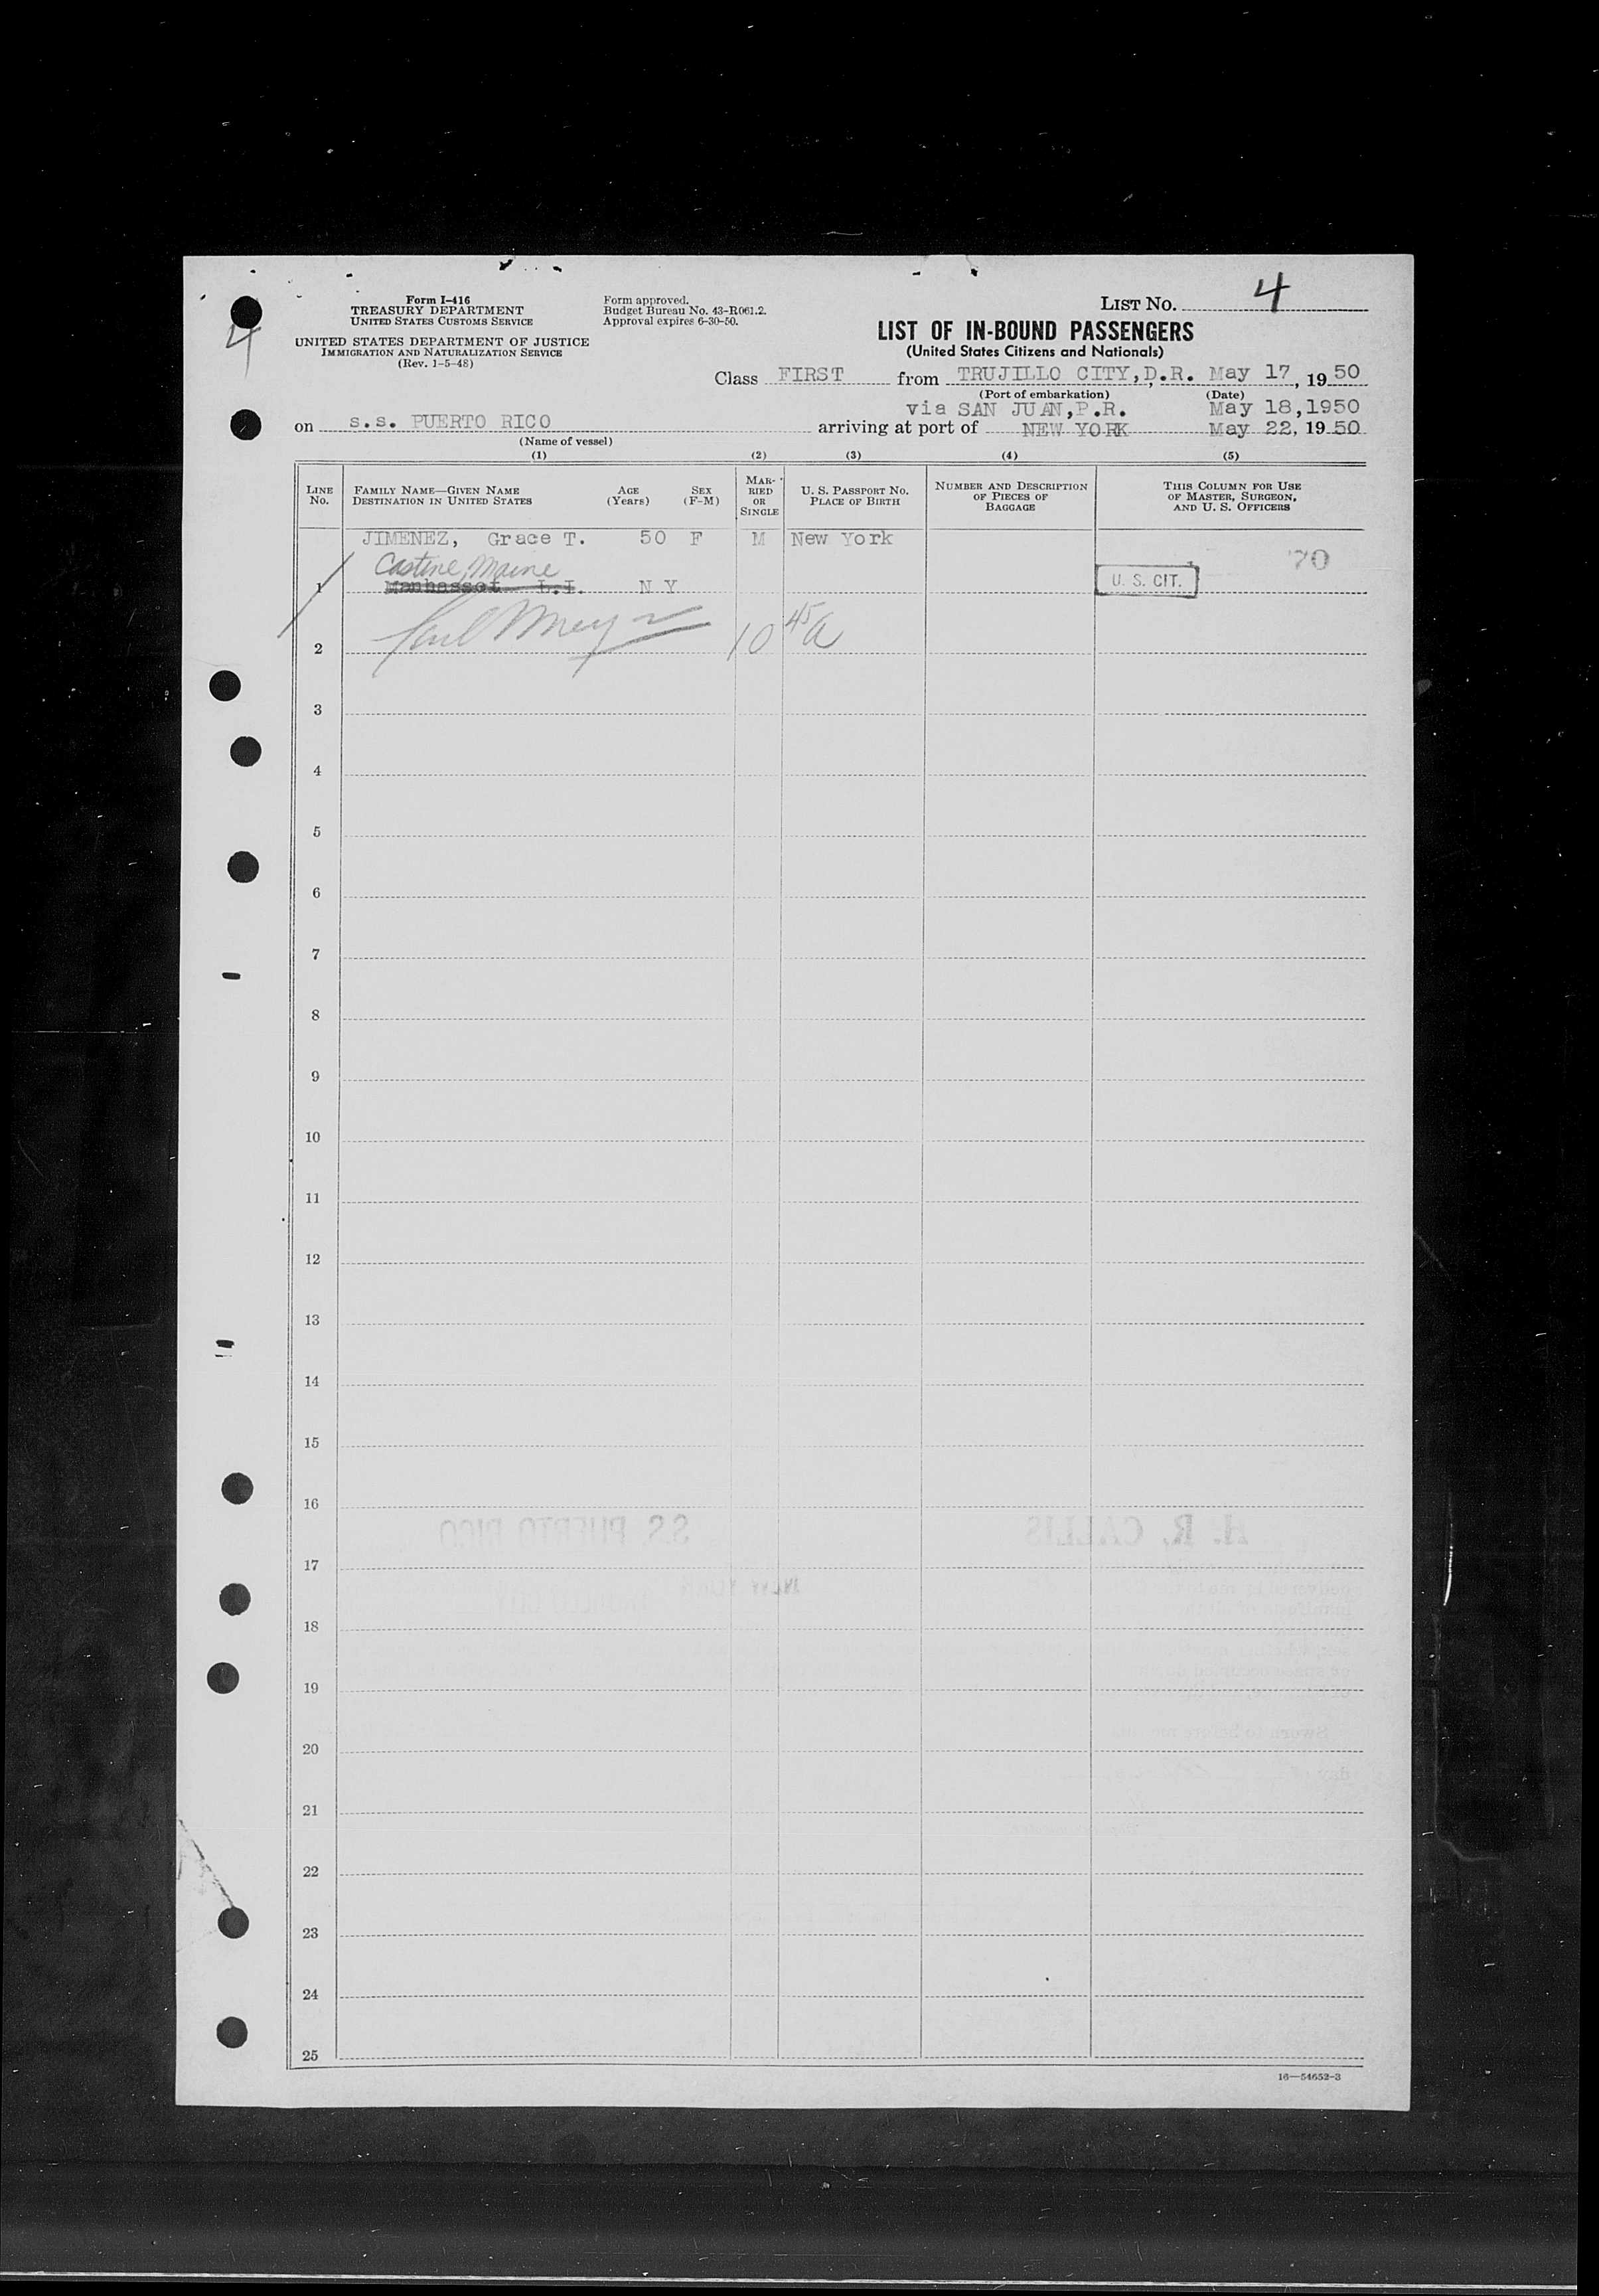 4
Form I-416
TREASURY DEPARTMENT
UNITED STATES CUSTOMS SERVICE
UNITED STATES DEPARTMENT OF JUSTICE
IMMIGRATION AND NATURALIZATION SERVICE
(Rev. 1-5-48)
Form approved.
Budget Bureau No. 43-R061.2.
Approval expires 6-30-50.
LIST NO. 4
LIST OF IN-BOUND PASSENGERS
(United States Citizens and Nationals)
Class FIRST from TRUJILLO CITY, D.R. May 17, 1950
(Port of embarkation) (Date)
via SAN JUAN, P.R. May 18,1950
on s.s. PUERTO RICO arriving at port of NEW YORK May 22, 1950
(Name of vessel)
(1) (2) (3) (4) (5)
LINE NO. FAMILY NAME—GIVEN NAME DESTINATION IN UNITED STATES AGE (Years) SEX (F-M) MARRIED OR SINGLE U. S. PASSPORT NO. PLACE OF BIRTH NUMBER AND DESCRIPTION OF PIECES OF BAGGAGE THIS COLUMN FOR USE OF MASTER, SURGEON, AND U. S. OFFICERS
JIMENEZ, Grace T. 50 F M New York
Castine, Maine 70
1 Manhasset L.I. N Y U. S. CIT.
2 10 45 a
3
4
5
6
7
8
9
10
11
12
13
14
15
16
S.S. PUERTO RICO H. R. CALLIS
17
NEW YORK
TRUJILLO CITY
18
19
20
Sworn to before me
21
22
23
24
25
16—54652-3